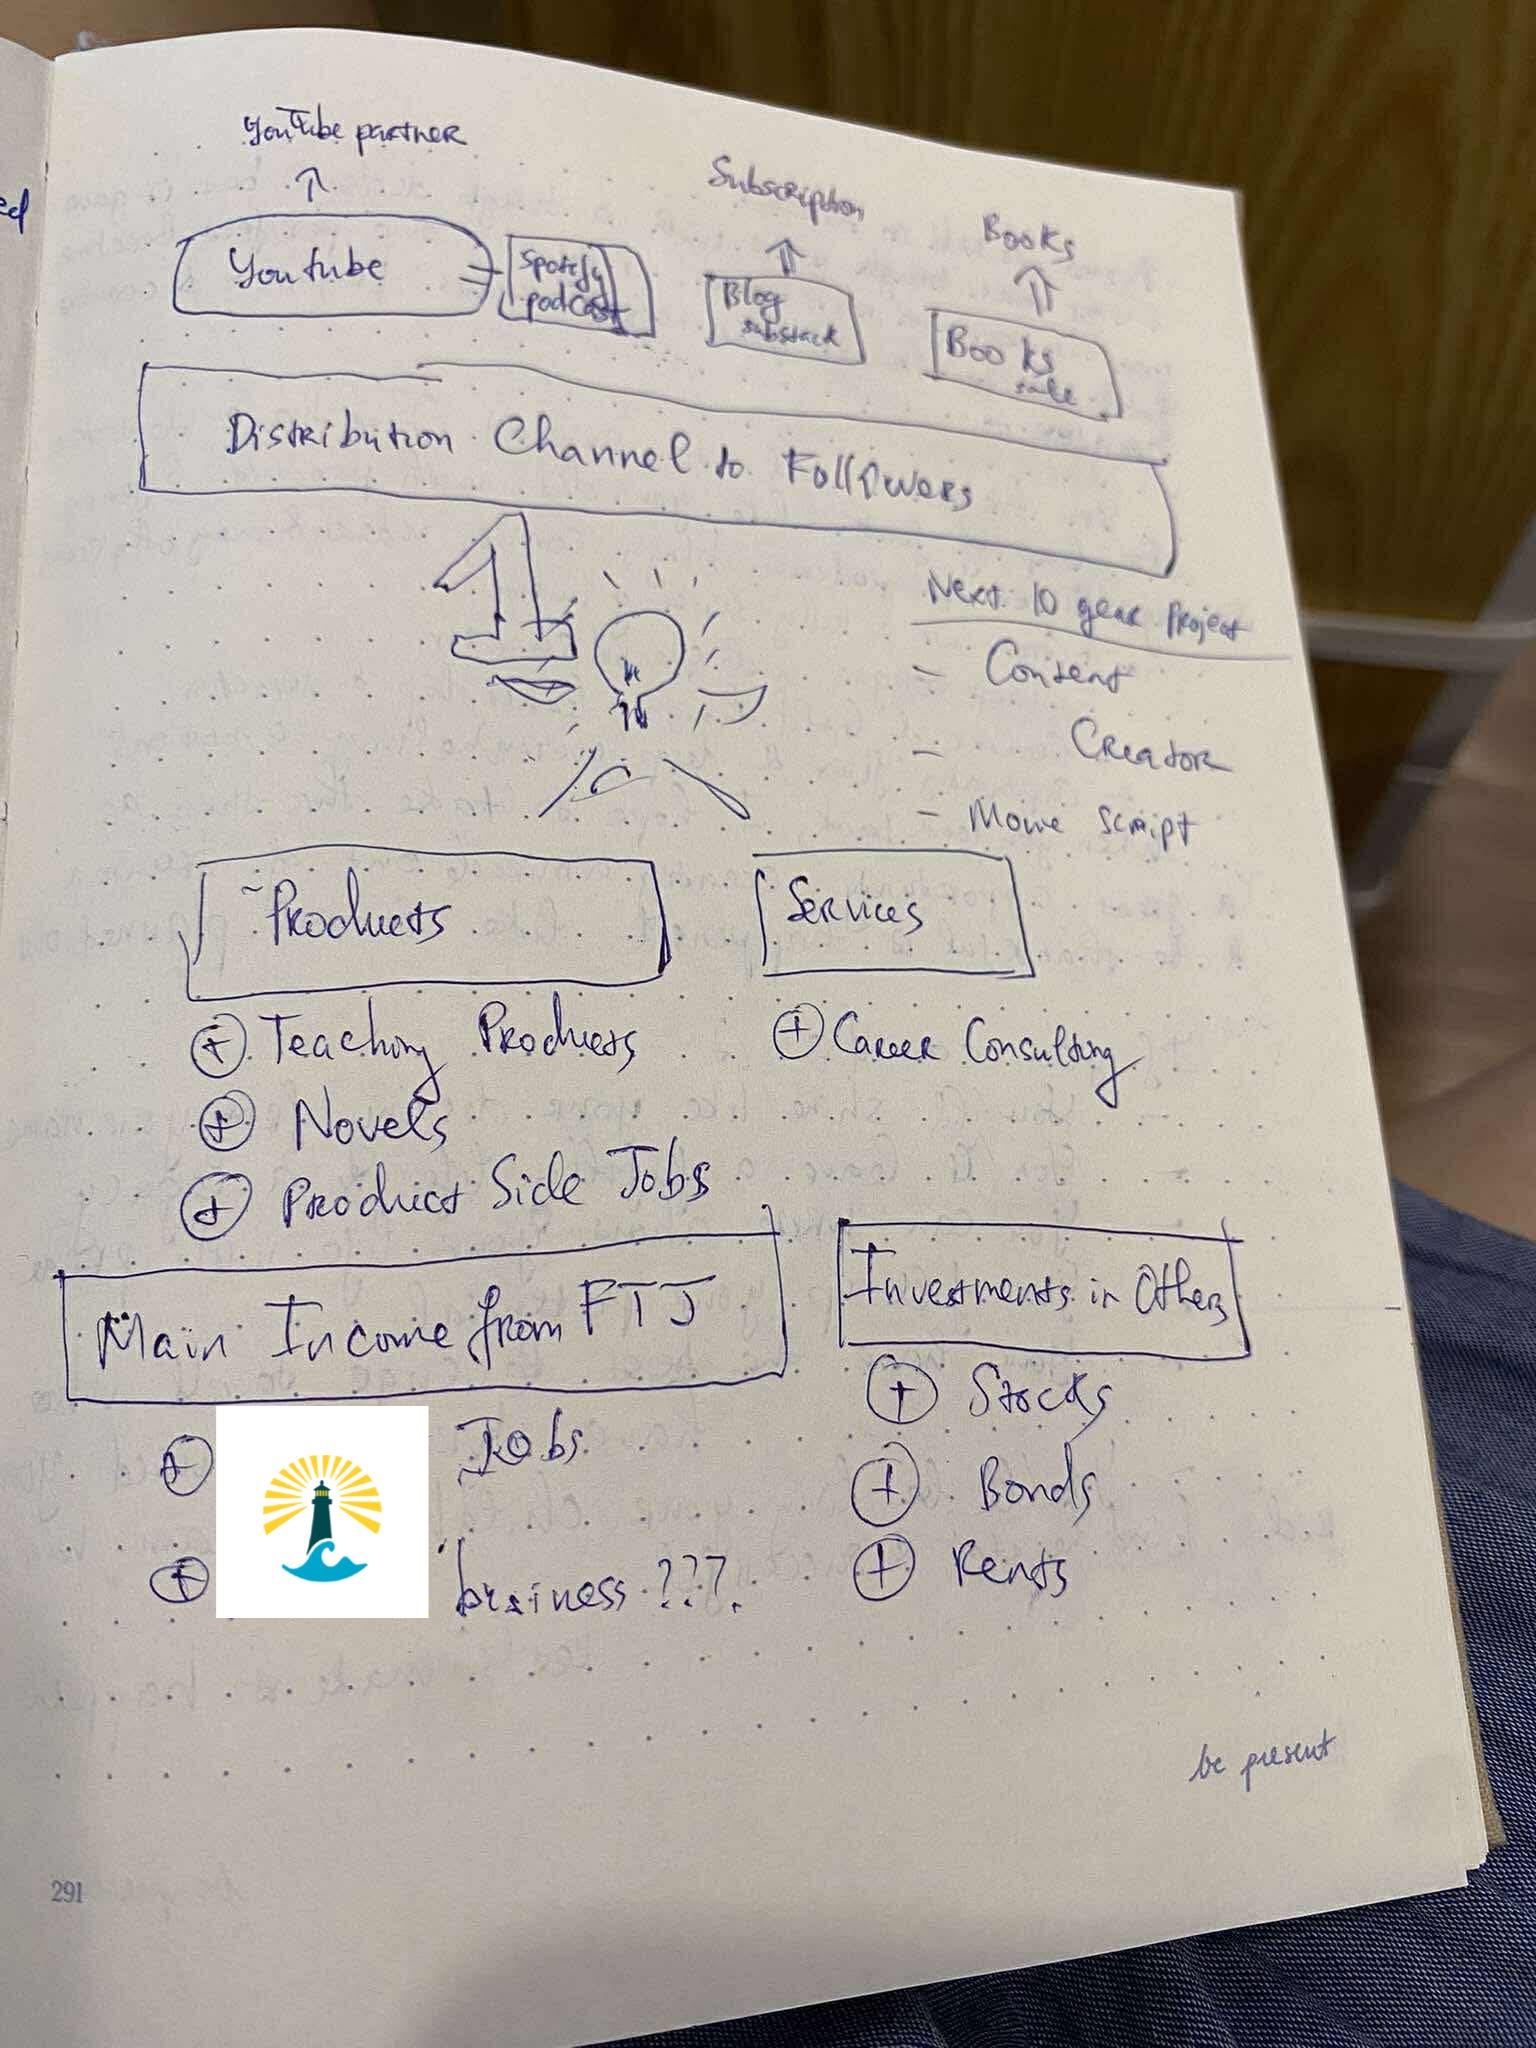 ed
YouTube partner
Subscription
Books
Youtube
Spotify
podcast
Blog
substack
Books
sale
Distribution Channel to Followers
1
Next 10 year Project
- Content
- Creator
- Movie script
~Products
Services
+ Teaching Products
+ Career Consulting
+ Novels
+ Product Side Jobs
Main Income from FTJ
Investments in Others
+ Jobs
+ Stocks
+ Bonds
+ business ???.
+ Rents
be present
291